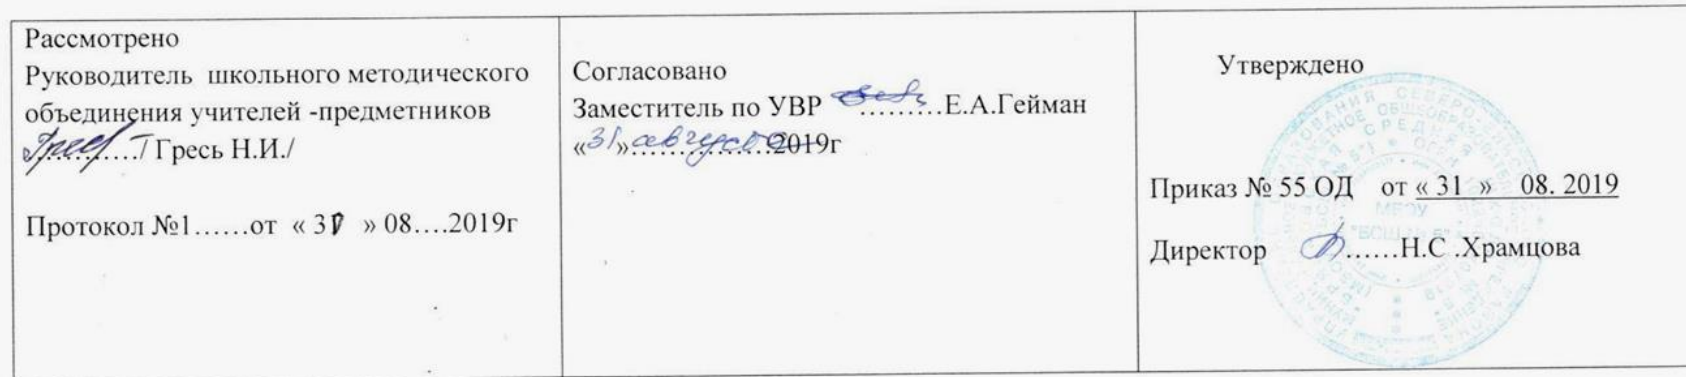 Рассмотрено
Руководитель школьного методического
объединения учителей -предметников
........../ Гресь Н.И./
Протокол №1......от « 31 » 08....2019г
Согласовано
Заместитель по УВР .........Е.А.Гейман
«31» августа 2019г
Утверждено
Приказ № 55 ОД от « 31 » 08. 2019
Директор ......Н.С .Храмцова
МБОУ
"БСШ № 5"